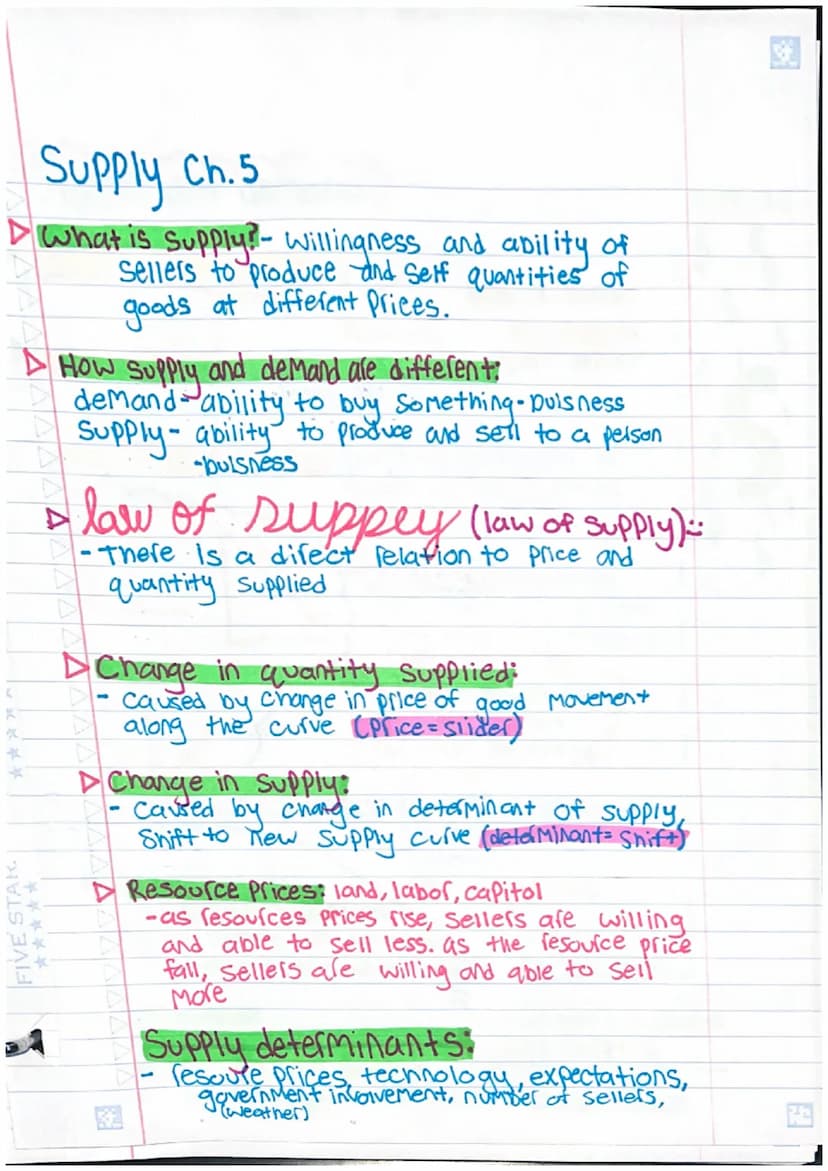 Supply Ch.5
What is supply? - Willingness and ability of
sellers to produce and self quantities of
goods at different Prices.
How supply and demand are different:
demand - ability to buy something - buisness
supply - ability to produce and sell to a person
-buisness
law of supply (law of supply):
- There Is a direct relation to price and
quantity supplied
Change in quantity supplied:
- caused by change in price of good movement
along the curve (price = slider)
Change in supply:
- caused by change in determinant of supply,
Shift to new supply curve (determinant = shift)
Resource Prices: land, labor, capitol
- as resources prices rise, sellers are willing
and able to sell less. as the resource price
fall, sellers are willing and able to sell
More
Supply determinants:
- resoure prices, technology, expectations,
government involvement, number of sellers,
(weather)
FIVE STAR